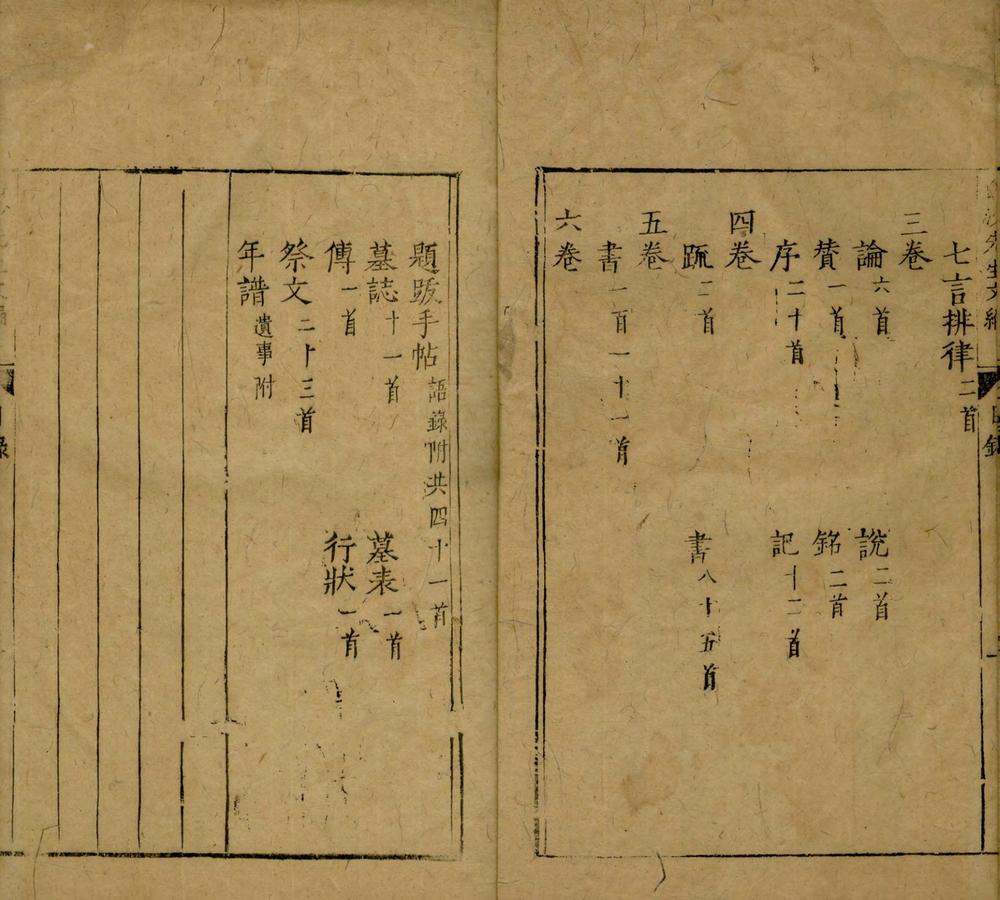 沙先生文編 目錄
七言排律二首
三卷
論六首 說二首
賛一首 銘二首
序二十首 記十二首
四卷
䟽二首 書八十五首
五卷
書一百一十一首
六卷
題跋手帖語錄附共四十一首
墓誌十一首 墓表一首
傳一首 行狀一首
祭文二十三首
年譜遺事附